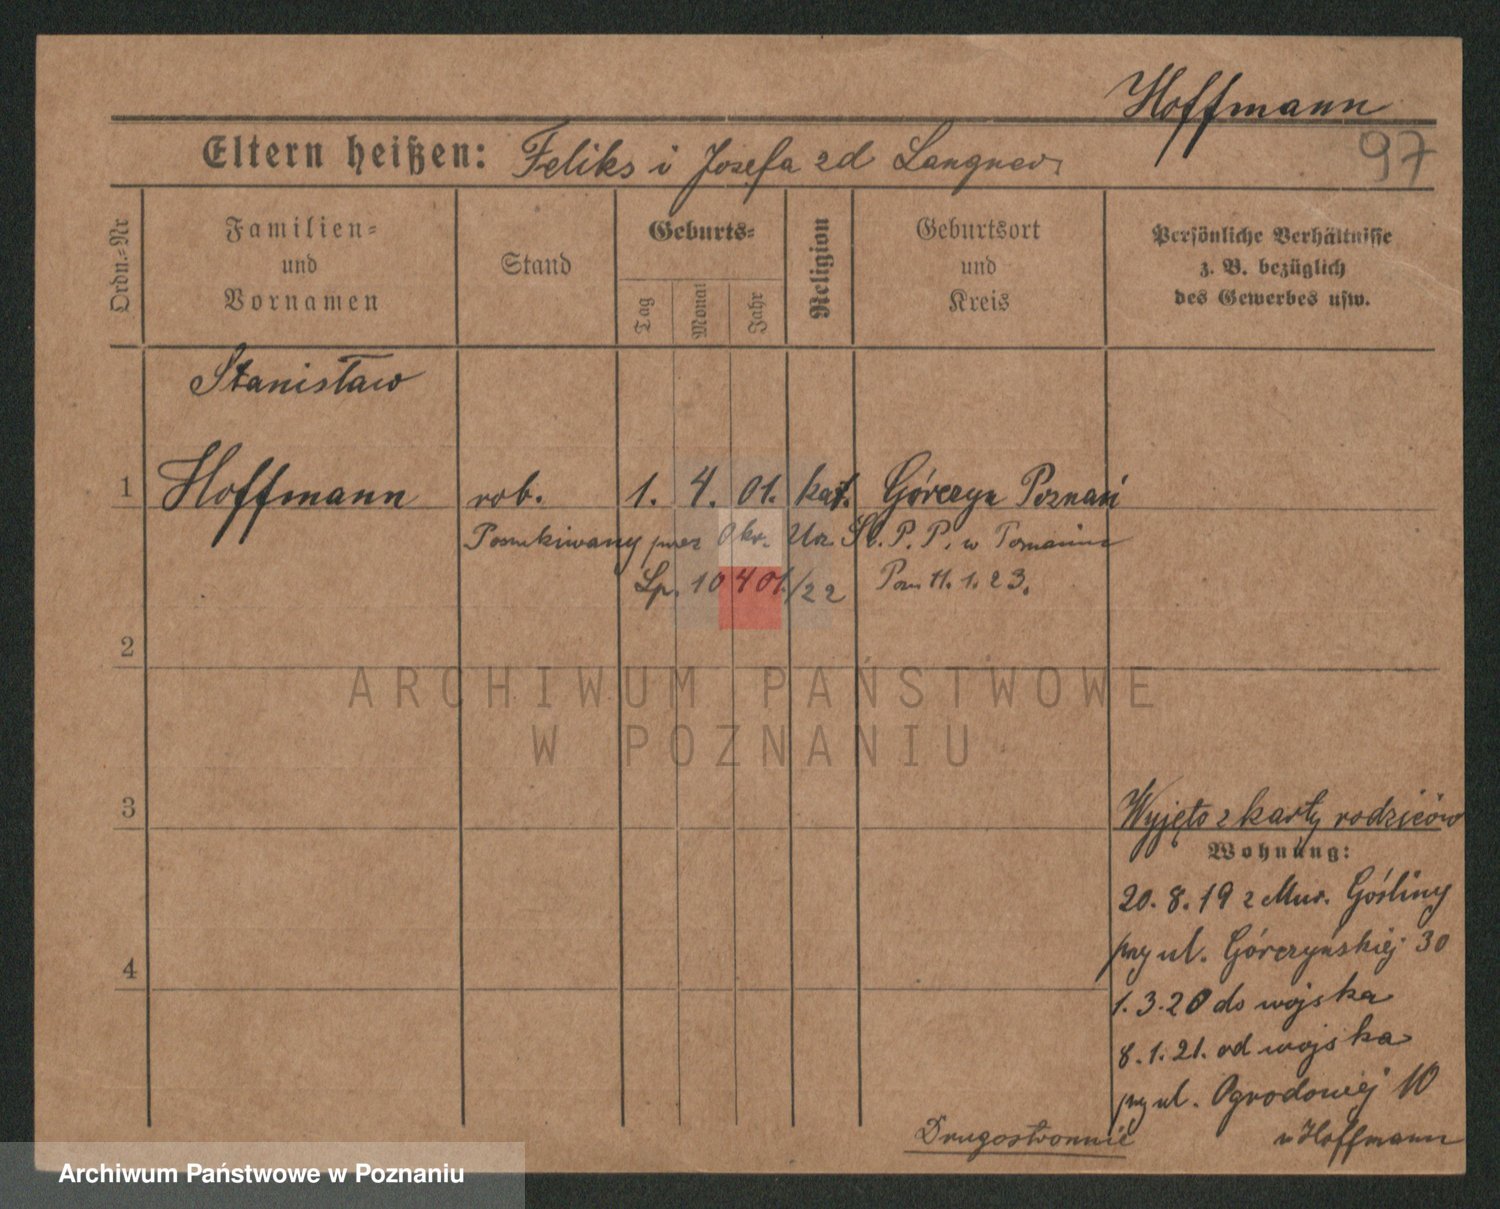 Hoffmann
97
Eltern heißen: Feliks i Josefa zd Langner
Ordn.=Nr
Familien=
und
Vornamen
Stand
Geburts=
Tag
Monat
Jahr
Religion
Geburtsort
und
Kreis
Persönliche Verhältnisse
z. B. bezüglich
des Gewerbes usw.
Stanisław
1 Hoffmann rob. 1. 4. 01. kat. Górczyn Poznań
Poszukiwany przez Okr. Urz. Śl. P. P. w Poznaniu
Lp. 10401/22 Pozn 11. 1. 23.
2
ARCHIWUM PAŃSTWOWE
W POZNANIU
3
Wyjęto z karty rodziców
Wohnung:
20. 8. 19 z Mur. Gośliny
przy ul. Górczyńskiej 30
4
1. 3. 20 do wojska
8. 1. 21. od wojska
przy ul. Ogrodowej 10
u Hoffmann
Drugostronnie
Archiwum Państwowe w Poznaniu